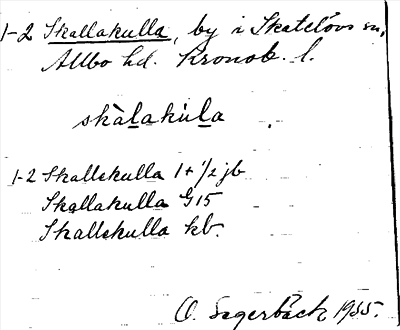 1-2 Skallakulla, by i Skatelövs sn,
Allbo hd. Kronob. l.
skàlakùla.
1-2 Skallekulla 1+1/2 jb
Skallakulla G15
Skallekulla kb.
O. Sagerbäck 1935.